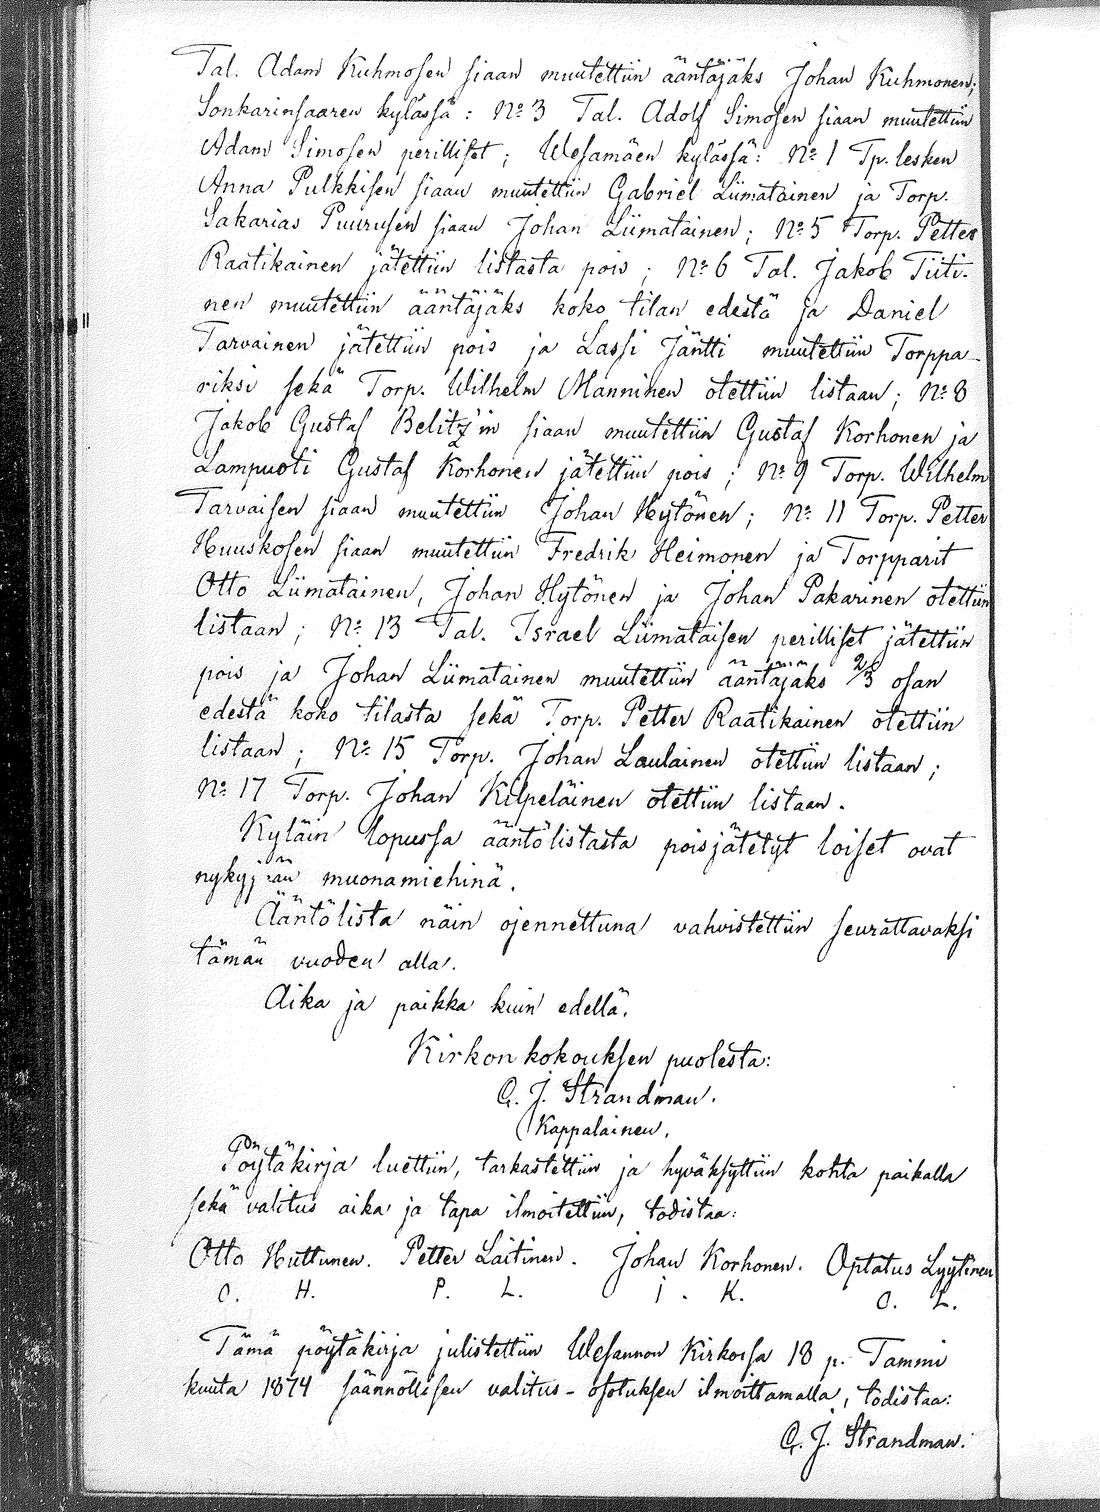 Tal. Adam Kuhmosen siaan muutettiin ääntäjäks Johan Kuhmonen;
Sonkarinsaaren kylässä: No 3 Tal. Adolf Simosen siaan muutettiin
Adam Simosen perilliset; Wesamäen kylässä: No 1 Tp. lesken
Anna Pulkkisen siaan muutettiin Gabriel Liimatainen ja Torp.
Sakarias Puurusen siaan Johan Liimatainen; No 5 Torp. Petter
Raatikainen jätettiin listasta pois; No 6 Tal. Jakob Tiiti-
nen muutettiin ääntäjäks koko tilan edestä ja Daniel
Tarvainen jätettiin pois ja Lassi Jäntti muutettiin Torppa-
riksi sekä Torp. Wilhelm Manninen otettiin listaan; No 8
Jakob Gustaf Belitz'in siaan muutettiin Gustaf Korhonen ja
Lampuoti Gustaf Korhonen jätettiin pois; No 9 Torp. Wilhelm
Tarvaisen siaan muutettiin Johan Hytönen; No 11 Torp. Petter
Huuskosen siaan muutettiin Fredrik Heimonen ja Torpparit
Otto Liimatainen, Johan Hytönen ja Johan Pakarinen otettiin
listaan; No 13 Tal. Israel Liimataisen perilliset jätettiin
pois ja Johan Liimatainen muutettiin ääntäjäks 2/3 osan
edestä koko tilasta sekä Torp. Petter Raatikainen otettiin
listaan; No 15 Torp. Johan Laulainen otettiin listaan;
No 17 Torp. Johan Kilpeläinen otettiin listaan.
Kyläin lopussa ääntölistasta poisjätetyt loiset ovat
nykyjään muonamiehinä.
Ääntölista näin ojennettuna vahvistettiin seurattavaksi
tämän vuoden alla.
Aika ja paikka kuin edellä.
Kirkonkokouksen puolesta:
G. J. Strandman.
Kappalainen.
Pöytäkirja luettiin, tarkastettiin ja hyväksyttiin kohta paikalla
sekä valitus aika ja tapa ilmoitettiin, todistaa:
Otto Huttunen. Petter Laitinen. Johan Korhonen. Optatus Lyytinen
O. H. P. L. J. K. O. L.
Tämä pöytäkirja julistettiin Wesannon Kirkossa 18 p. Tammi
kuuta 1874 säännöllisen valitus-osotuksen ilmoittamalla, todistaa:
G. J. Strandman.